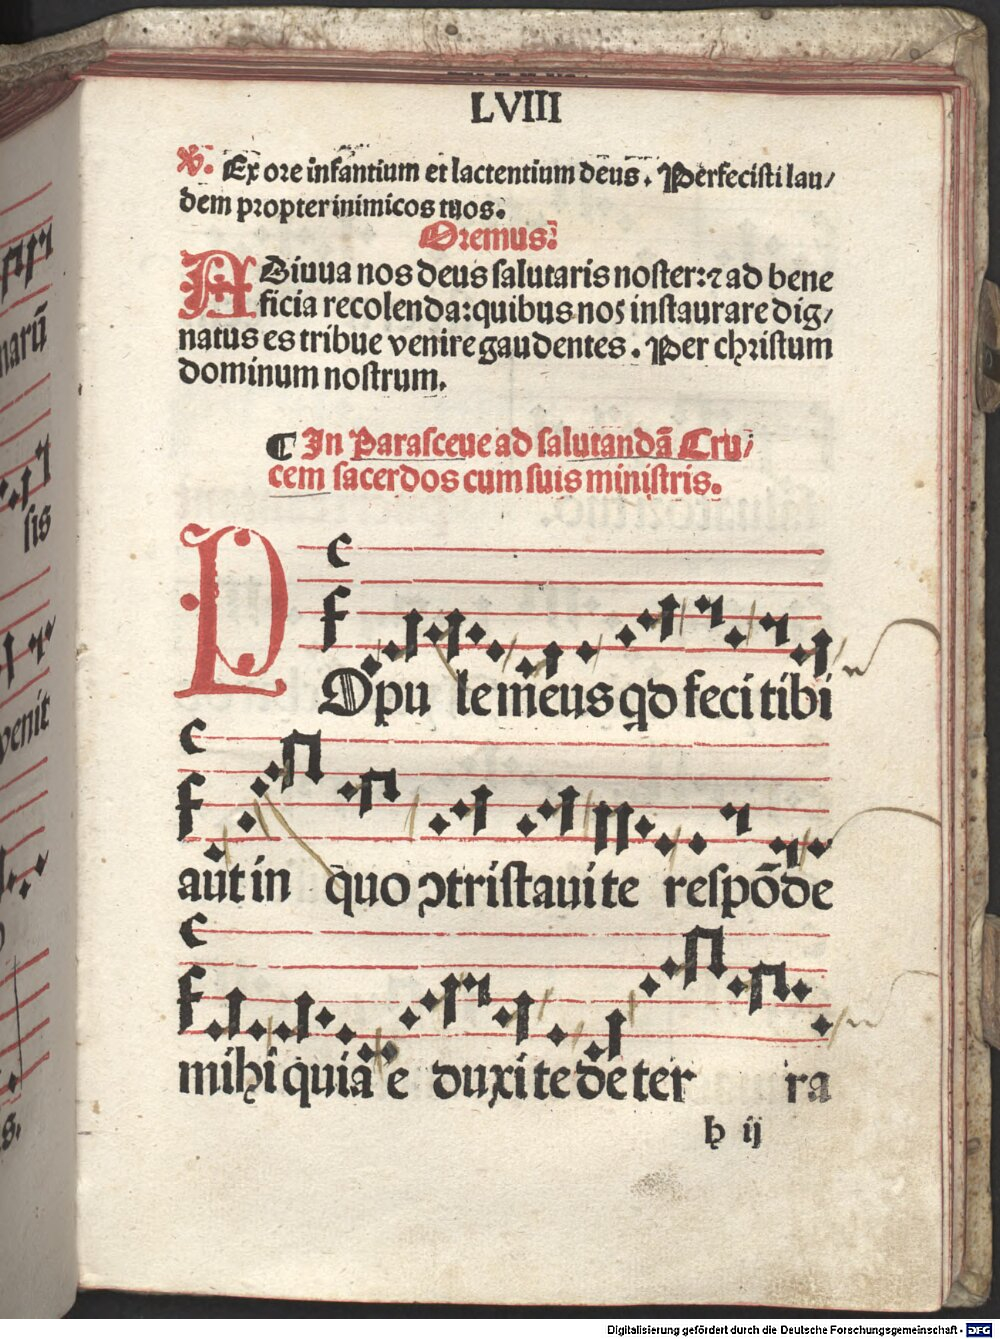 LVIII
℣. Ex ore infantium et lactentium deus. Perfecisti lau/
dem propter inimicos tuos.
Oremus:
ADiuua nos deus salutaris noster: ⁊ ad bene
ficia recolenda: quibus nos instaurare dig/
natus es tribue venire gaudentes. Per christum
dominum nostrum.
¶ In Parasceue ad salutandā Cru/
cem sacerdos cum suis ministris.
POpu le meus qd feci tibi
aūt in quo ↄtristaui te respōde
mihi quia e duxi te de ter ra
h ij
narū
sis
venit
s.
Digitalisierung gefördert durch die Deutsche Forschungsgemeinschaft - DFG